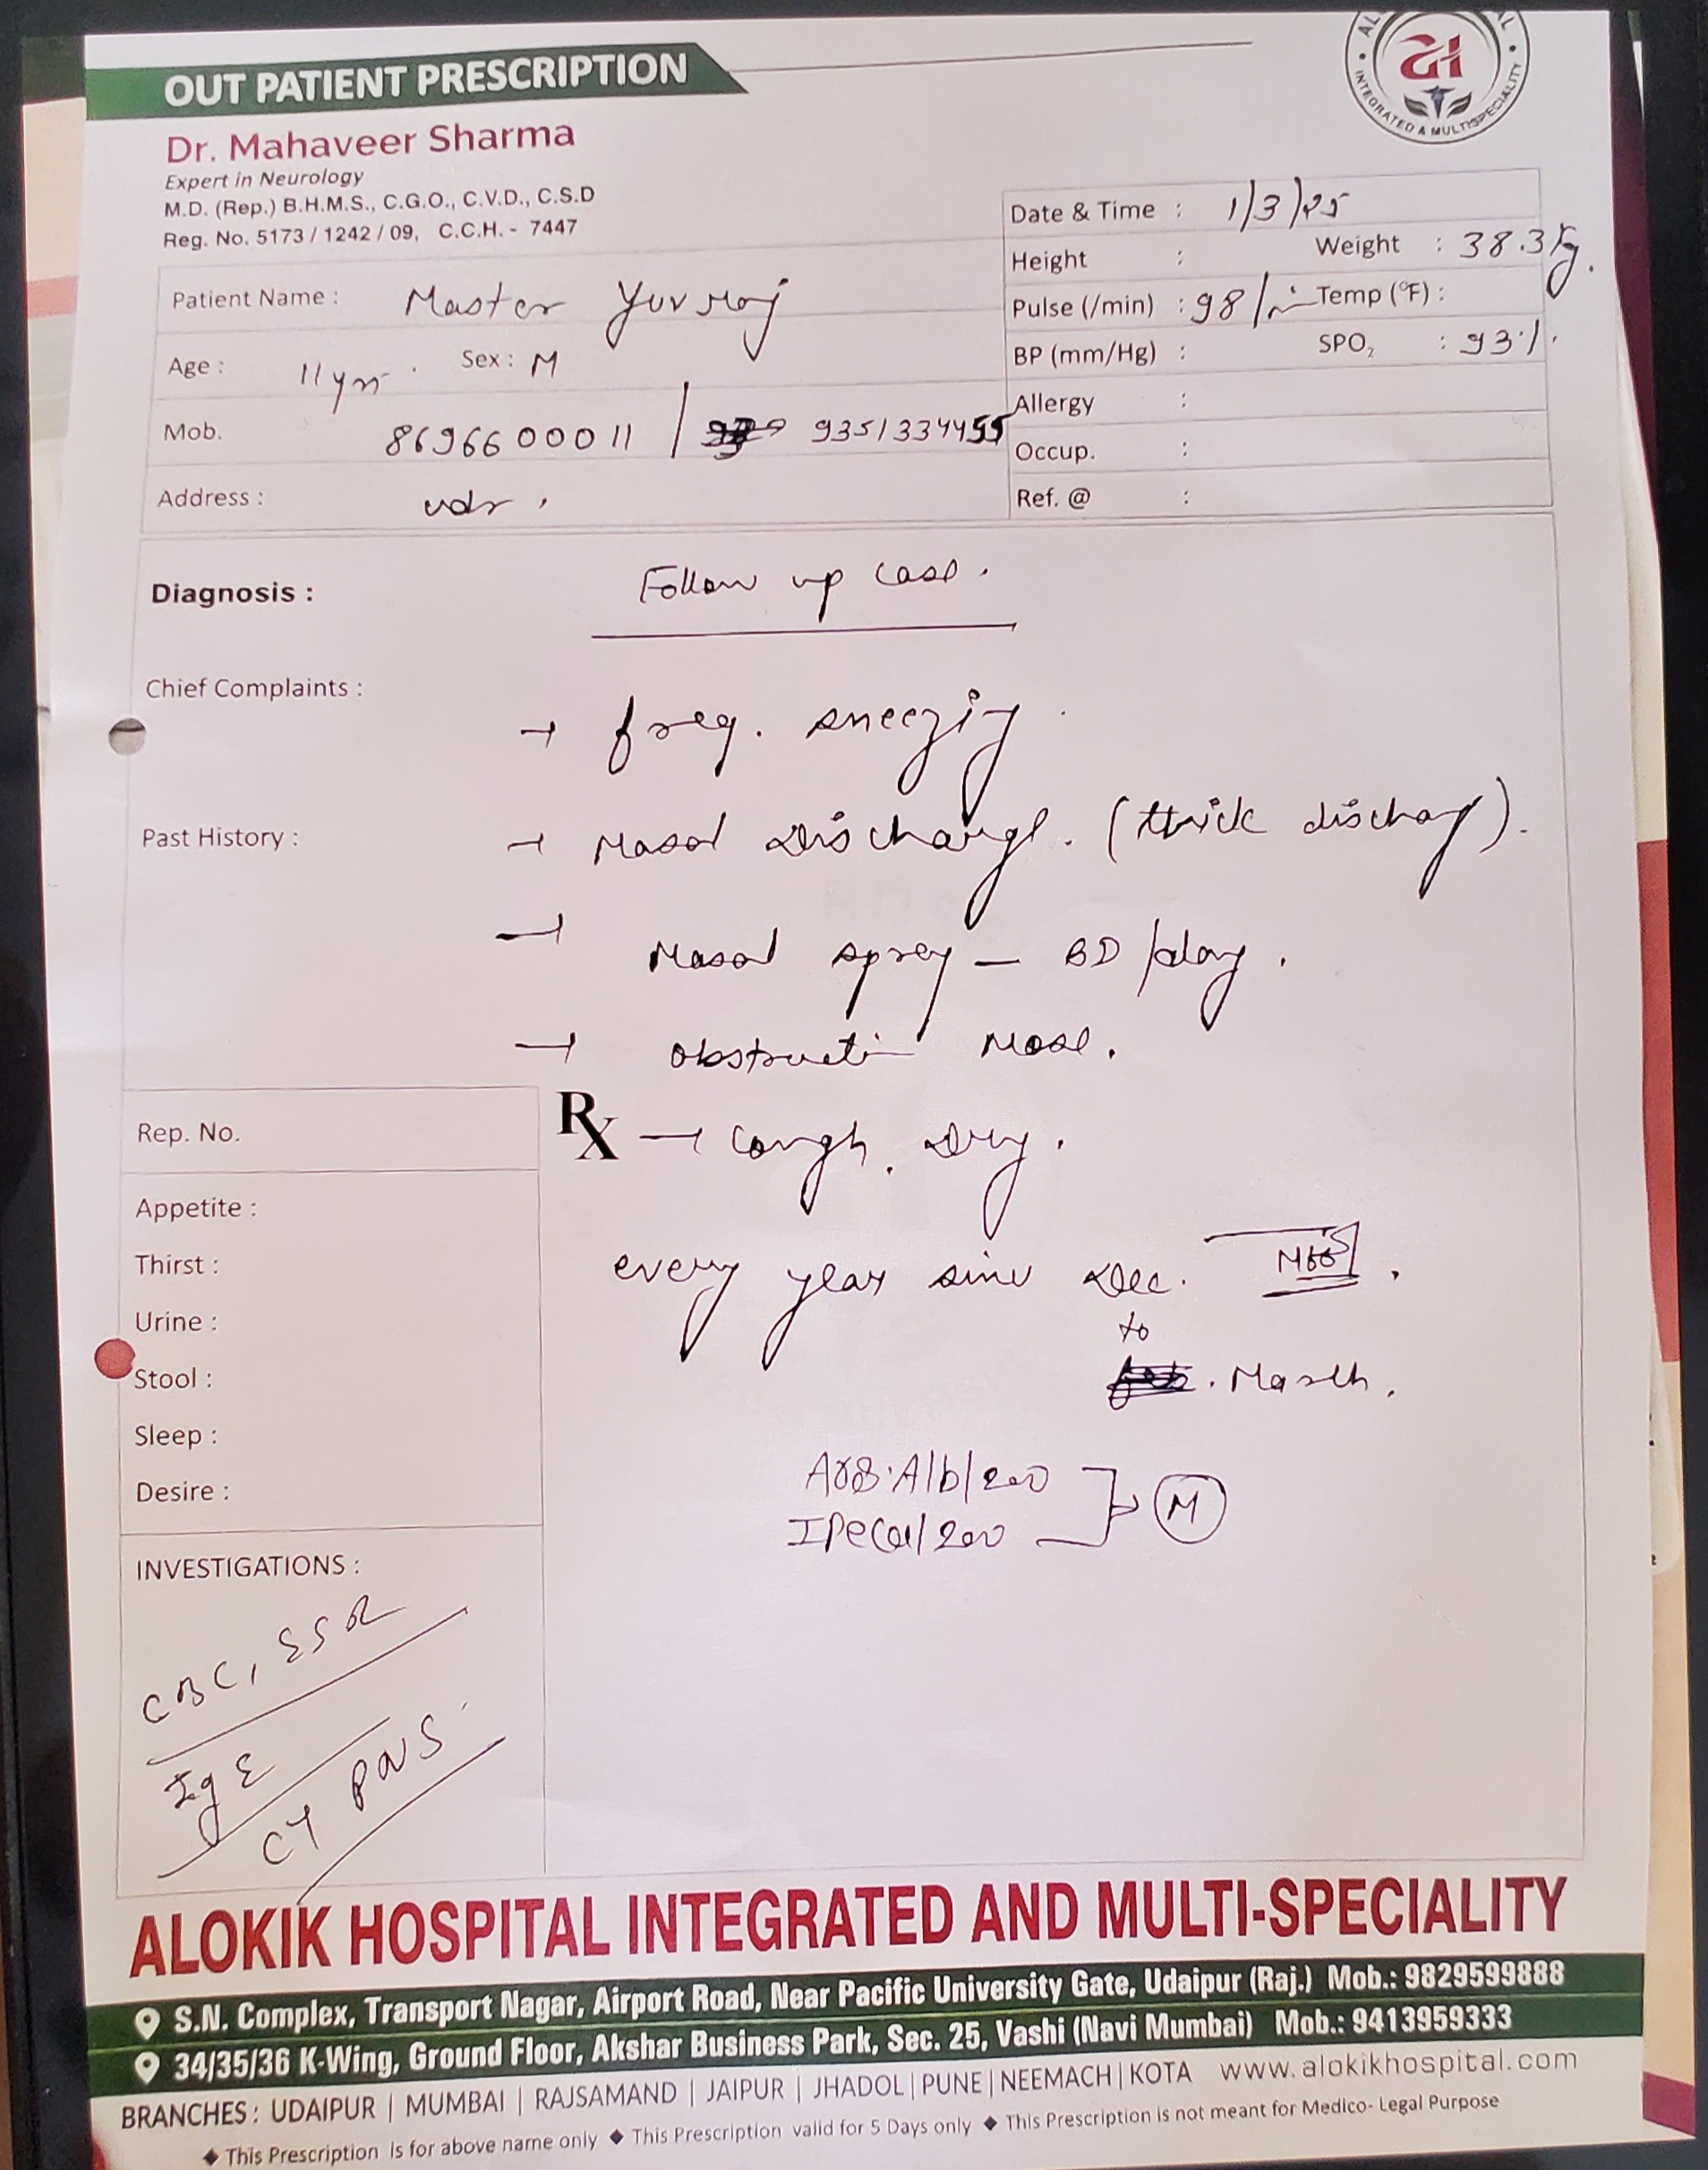 OUT PATIENT PRESCRIPTION
INTEGRATED & MULTISPECIALITY
Dr. Mahaveer Sharma
Expert in Neurology
M.D. (Rep.) B.H.M.S., C.G.O., C.V.D., C.S.D
Reg. No. 5173 / 1242 / 09, C.C.H. - 7447
Date & Time : 1/3/25
Height : Weight : 38.3 kg.
Pulse (/min) : 98/ Temp (°F) :
BP (mm/Hg) : SPO₂ : 93%.
Allergy :
Occup. :
Ref. @ :
Patient Name : Master Yuvraj
Age : 11 yrs. Sex : M
Mob. 8696600011 / 9351334455
Address : udr.
Diagnosis : Follow up case.
Chief Complaints :
→ freq. sneezing.
Past History : → Nasal Discharge. (thick discharg).
→ Nasal spray – BD/day.
→ Obstructi Nose.
Rx → Cough. Dry.
every year sinc Dec.
to
March.
Ars.Alb/200
IPeCa/200 } M
Rep. No.
Appetite :
Thirst :
Urine :
Stool :
Sleep :
Desire :
INVESTIGATIONS :
CBC, ESR
IgE
CT PNS
ALOKIK HOSPITAL INTEGRATED AND MULTI-SPECIALITY
S.N. Complex, Transport Nagar, Airport Road, Near Pacific University Gate, Udaipur (Raj.) Mob.: 9829599888
34/35/36 K-Wing, Ground Floor, Akshar Business Park, Sec. 25, Vashi (Navi Mumbai) Mob.: 9413959333
BRANCHES : UDAIPUR | MUMBAI | RAJSAMAND | JAIPUR | JHADOL | PUNE | NEEMACH | KOTA www.alokikhospital.com
◆ This Prescription Is for above name only ◆ This Prescription valid for 5 Days only ◆ This Prescription is not meant for Medico- Legal Purpose